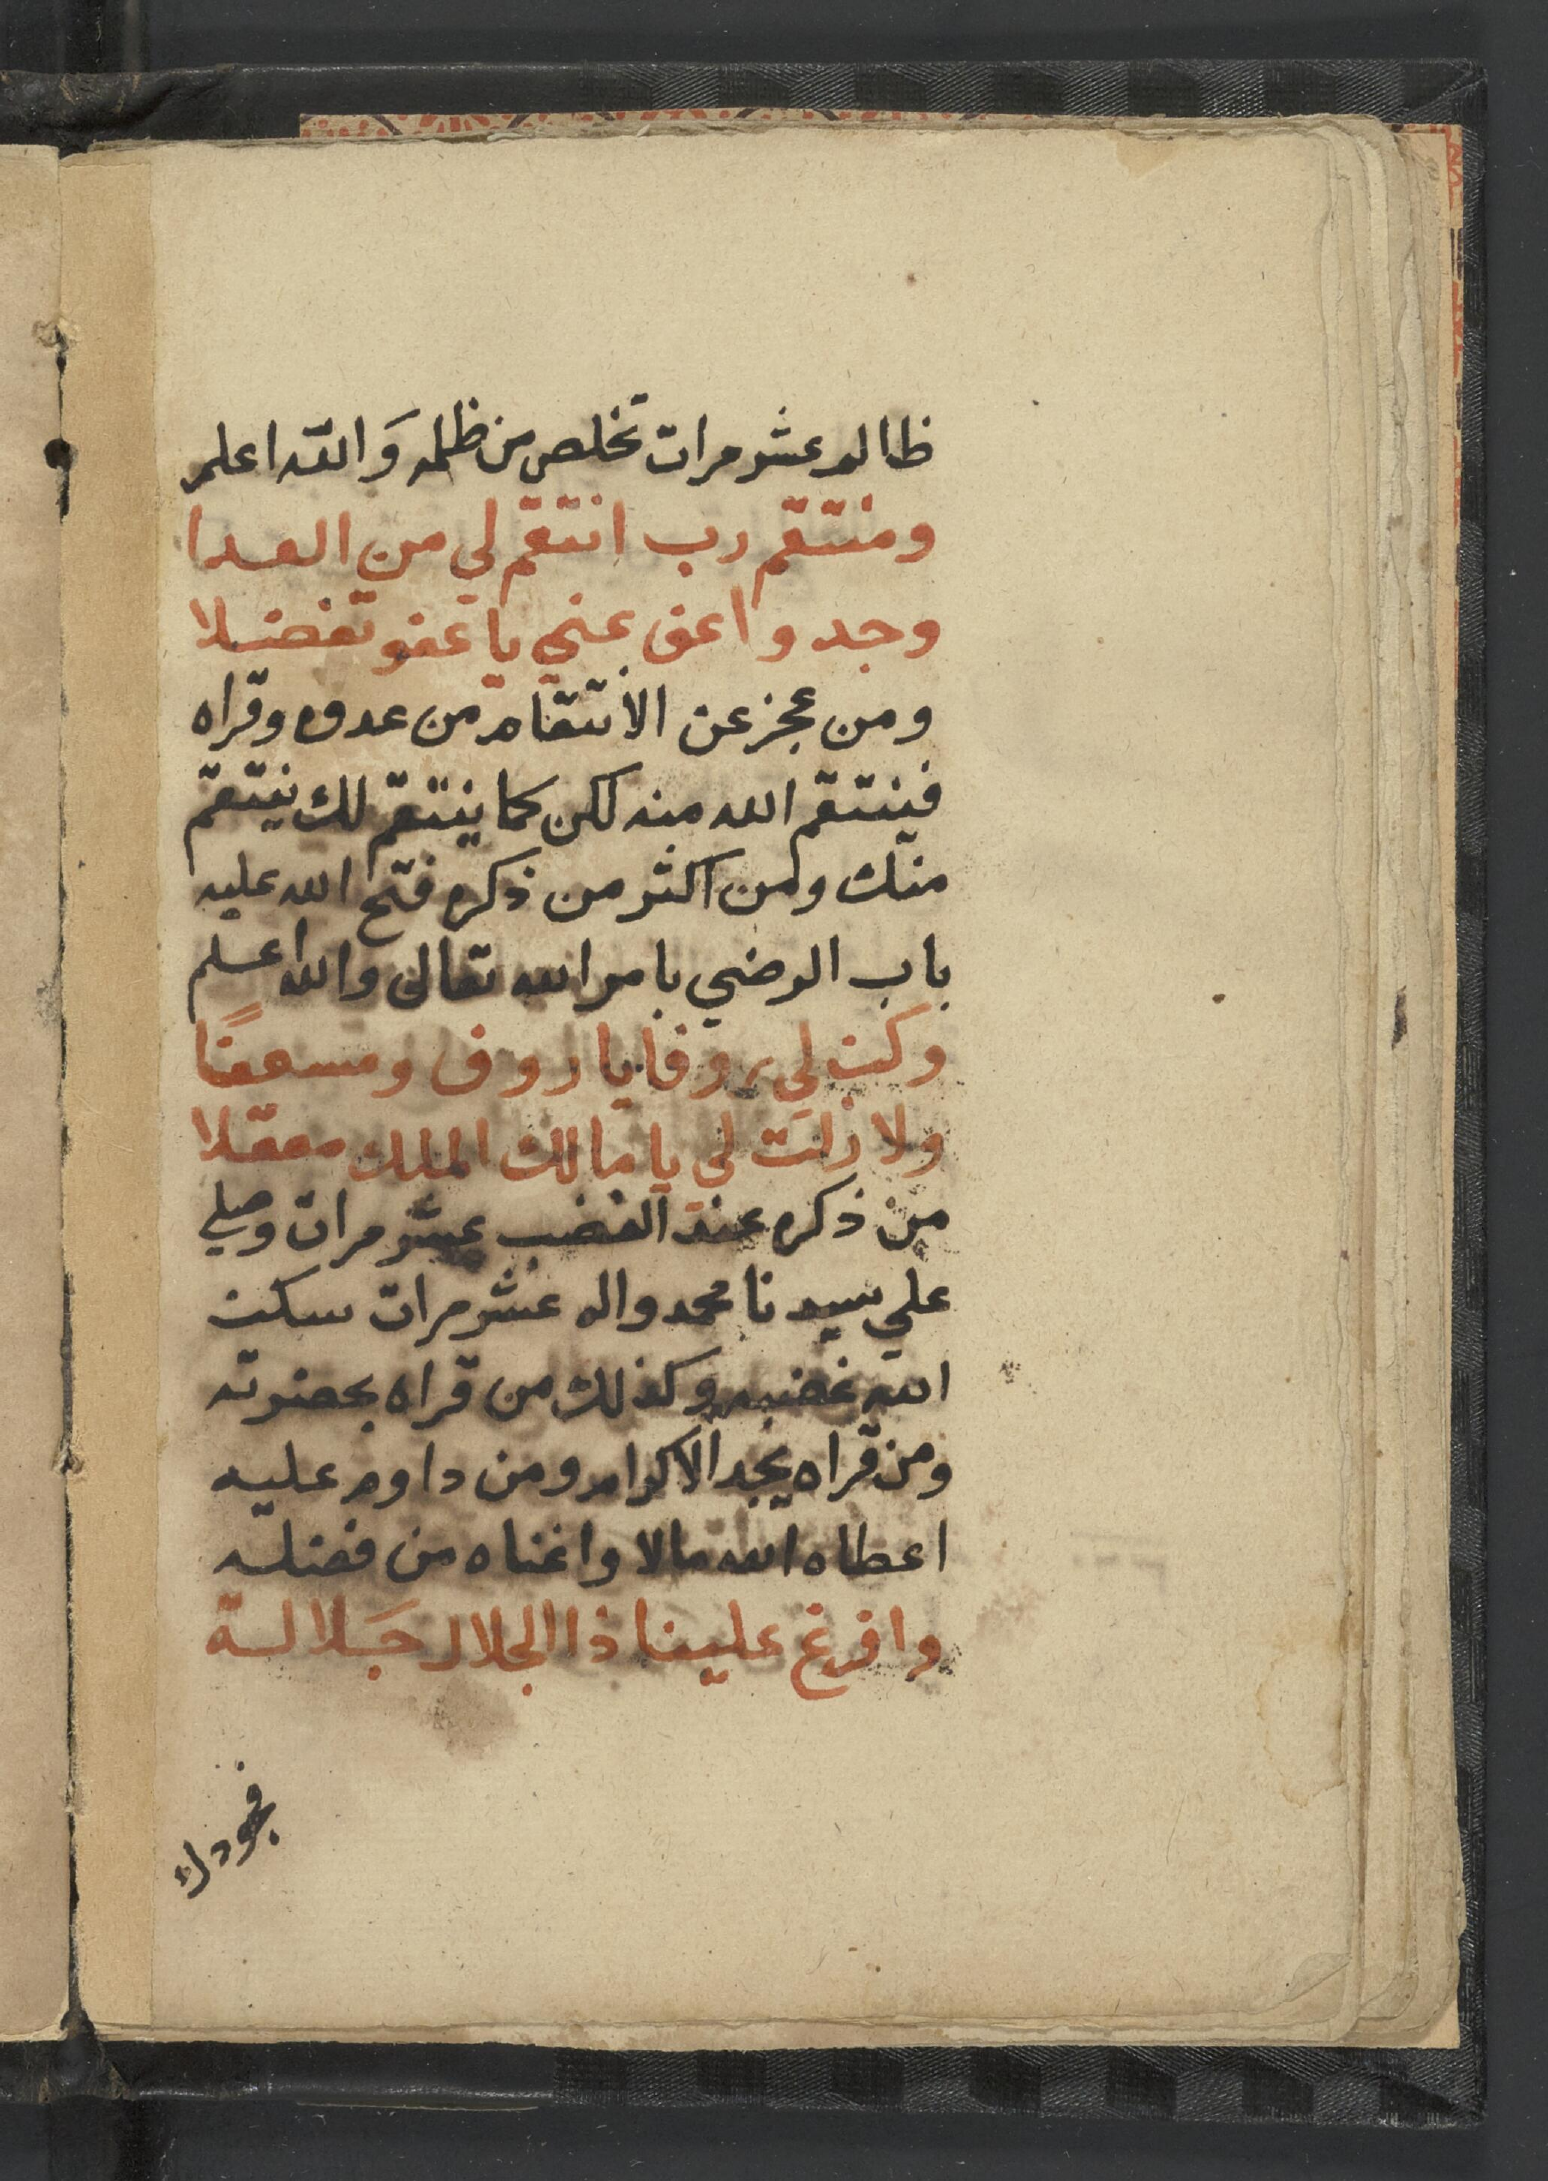 ظالم عشر مرات تخلص من ظلمه وَالله اعلم
ومنتقم رب انتقم لي من العدا
وجد واعف عني يا عفو تفضلا
ومن عجز عن الانتقام من عدوه وقراه
فينتقم الله منه لكن كما ينتقم لك ينتقم
منك ومن اكثر من ذكره فتح الله عليه
باب الرضي بامر الله تعالى والله اعلم
وكن لي روفا يا روف ومسعفًا
ولا زلت لي يا مالك الملك معقلا
من ذكره عند الغضب عشر مرات وصلي
علي سيدنا محمد واله عشر مرات سكت
الله غضبه وكذلك من قراه بحضرته
ومن قراه يجد الاكرام ومن داوم عليه
اعطاه الله مالا واغناه من فضله
وافرغ علينا ذا الجلال جَلالة
فجودك